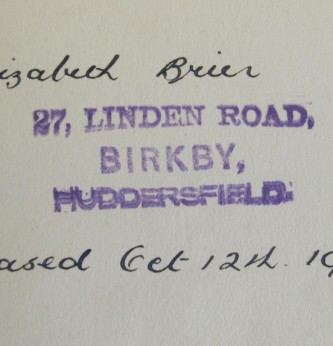 izabeth Brier
27, LINDEN ROAD,
BIRKBY,
HUDDERSFIELD.
ased Oct 12th. 19